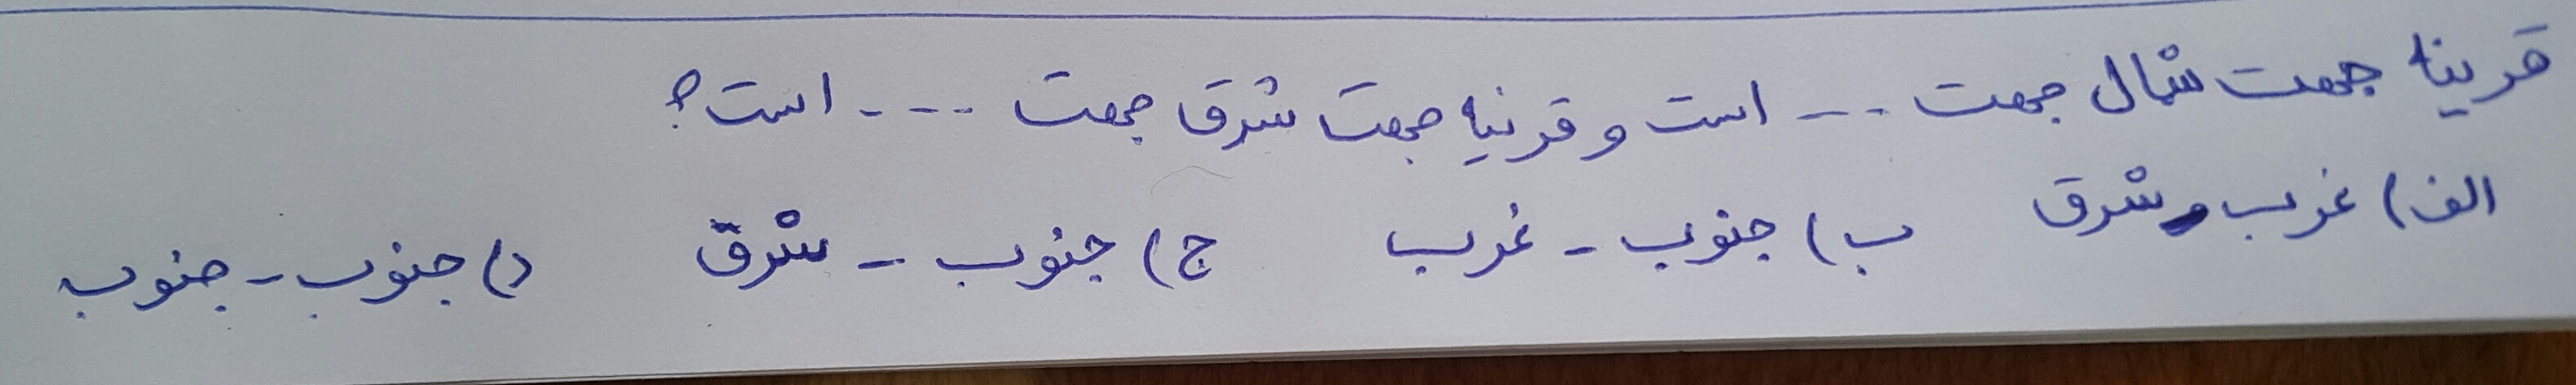 قرینه جهت شمال جهت --- است و قرنیه جهت شرق جهت ---- است؟
الف) غرب - شرق ب) جنوب - غرب ج) جنوب - شرق د) جنوب - جنوب